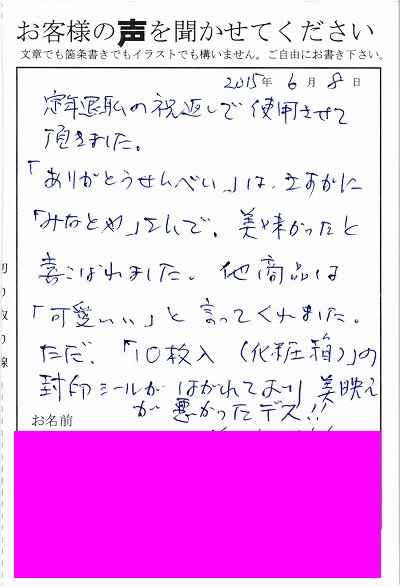 お客様の声を聞かせてください
文章でも箇条書きでもイラストでも構いません。ご自由にお書き下さい。
2015年 6月 8日
定年退職の祝返しで使用させて
頂きました。
「ありがとうせんべい」は、さすがに
「みなとや」さんで、美味かったと
喜こばれました。他商品は
「可愛いい」と言ってくれました。
ただ、「10枚入(化粧箱)」の
封印シールがはがれており美映え
が悪かったデス!!
お名前
切り取り線